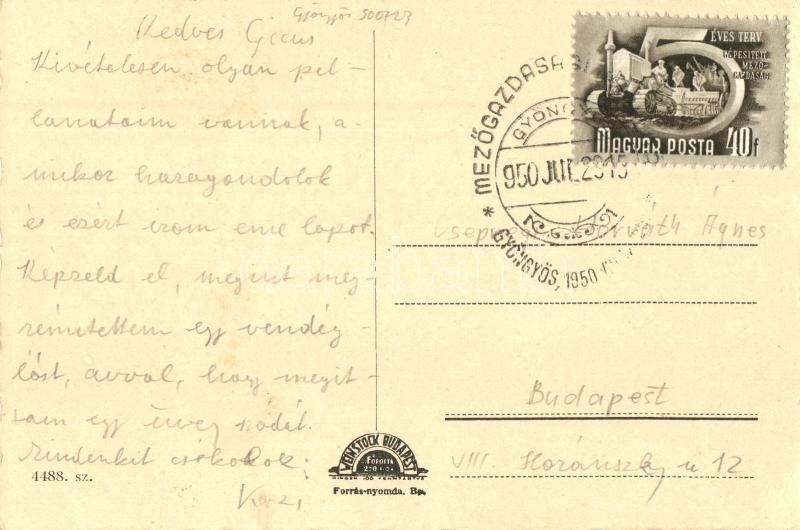 Gyöngyös 500723
Kedves Gicus
Kivételesen olyan pil-
lanataim vannak, a-
mikor hazagondolok
és ezért irom eme lapot.
Képzeld el, megint meg
rémitettem egy vendég-
löst, avval, hogy megit-
tam egy üveg sódát.
Mindenkit csókolok:
4488. sz.
WEINSTOCK BUDAPEST
Forrás-nyomda. Bp.
5 ÉVES TERV
GÉPESÍTETT
MEZŐ-
GAZDASÁG
MAGYAR POSTA 40f
* MEZŐGAZDASÁGI
GYÖNGYÖS
950 JUL 23 15
GYÖNGYÖS, 1950
Horváth Ágnes
Budapest
VIII. Horánszky u 12